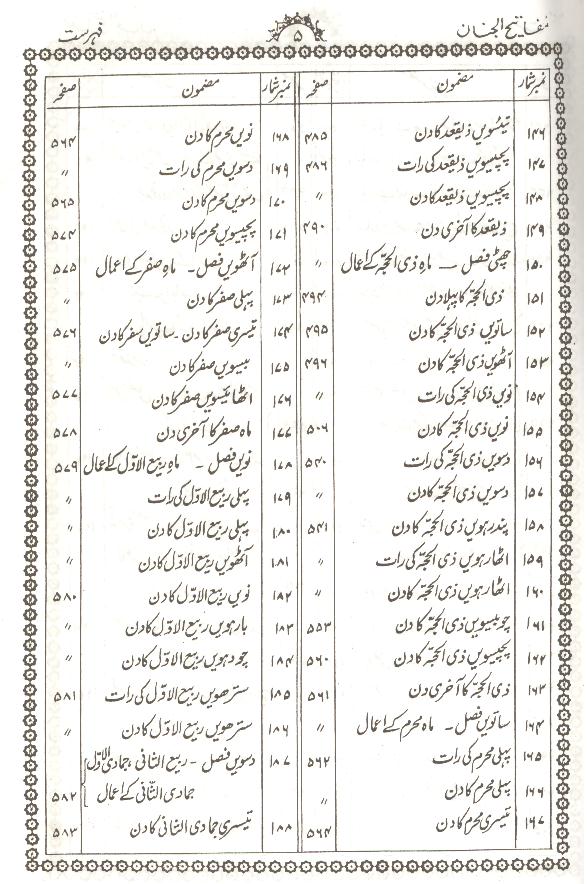 مفاتیح الجنان ۵ فہرست
نمبر شمار مضمون صفحہ
۱۴۶ تیئسویں ذیقعد کا دن ۴۸۵
۱۴۷ پچیسویں ذیقعد کی رات ۴۸۶
۱۴۸ پچیسویں ذیقعد کا دن 〃
۱۴۹ ذیقعد کا آخری دن ۴۹۰
۱۵۰ چھٹی فصل — ماہِ ذی الحجّہ کے اعمال 〃
۱۵۱ ذی الحجّہ کا پہلا دن ۴۹۴
۱۵۲ ساتویں ذی الحجّہ کا دن ۴۹۵
۱۵۳ آٹھویں ذی الحجّہ کا دن ۴۹۶
۱۵۴ نویں ذی الحجّہ کی رات 〃
۱۵۵ نویں ذی الحجّہ کا دن ۵۰۶
۱۵۶ دسویں ذی الحجّہ کی رات ۵۴۰
۱۵۷ دسویں ذی الحجّہ کا دن 〃
۱۵۸ پندرہویں ذی الحجّہ کا دن ۵۴۱
۱۵۹ اٹھارہویں ذی الحجّہ کی رات 〃
۱۶۰ اٹھارہویں ذی الحجّہ کا دن 〃
۱۶۱ چوبیسویں ذی الحجّہ کا دن ۵۵۳
۱۶۲ پچیسویں ذی الحجّہ کا دن ۵۶۰
۱۶۳ ذی الحجّہ کا آخری دن ۵۶۱
۱۶۴ ساتویں فصل ۔ ماہ محرم کے اعمال 〃
۱۶۵ پہلی محرم کی رات ۵۶۲
۱۶۶ پہلی محرم کا دن 〃
۱۶۷ تیسری محرم کا دن ۵۶۴
نمبر شمار مضمون صفحہ
۱۶۸ نویں محرم کا دن ۵۶۴
۱۶۹ دسویں محرم کی رات 〃
۱۷۰ دسویں محرم کا دن ۵۶۵
۱۷۱ پچیسویں محرم کا دن ۵۷۴
۱۷۲ آٹھویں فصل ۔ ماہِ صفر کے اعمال ۵۷۵
۱۷۳ پہلی صفر کا دن 〃
۱۷۴ تیسری صفر کا دن ۔ ساتویں سفر کا دن ۵۷۶
۱۷۵ بیسویں صفر کا دن 〃
۱۷۶ اٹھائیسویں صفر کا دن ۵۷۷
۱۷۷ ماہ صفر کا آخری دن ۵۷۸
۱۷۸ نویں فصل ۔ ماہِ ربیع الاوّل کے اعمال ۵۷۹
۱۷۹ پہلی ربیع الاوّل کی رات 〃
۱۸۰ پہلی ربیع الاوّل کا دن 〃
۱۸۱ آٹھویں ربیع الاوّل کا دن 〃
۱۸۲ نویں ربیع الاوّل کا دن ۵۸۰
۱۸۳ بارہویں ربیع الاوّل کا دن 〃
۱۸۴ چودہویں ربیع الاوّل کا دن 〃
۱۸۵ سترھویں ربیع الاوّل کی رات ۵۸۱
۱۸۶ سترھویں ربیع الاوّل کا دن 〃
۱۸۷ دسویں فصل ۔ ربیع الثانی ، جمادی الاوّل
جمادی الثّانی کے اعمال ۵۸۲
۱۸۸ تیسری جمادی الثانی کا دن ۵۸۳